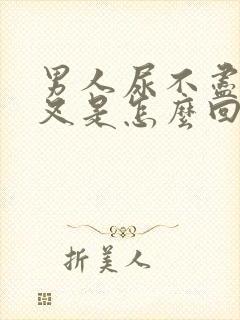 男人尿不盡
又是怎麼回
折美人